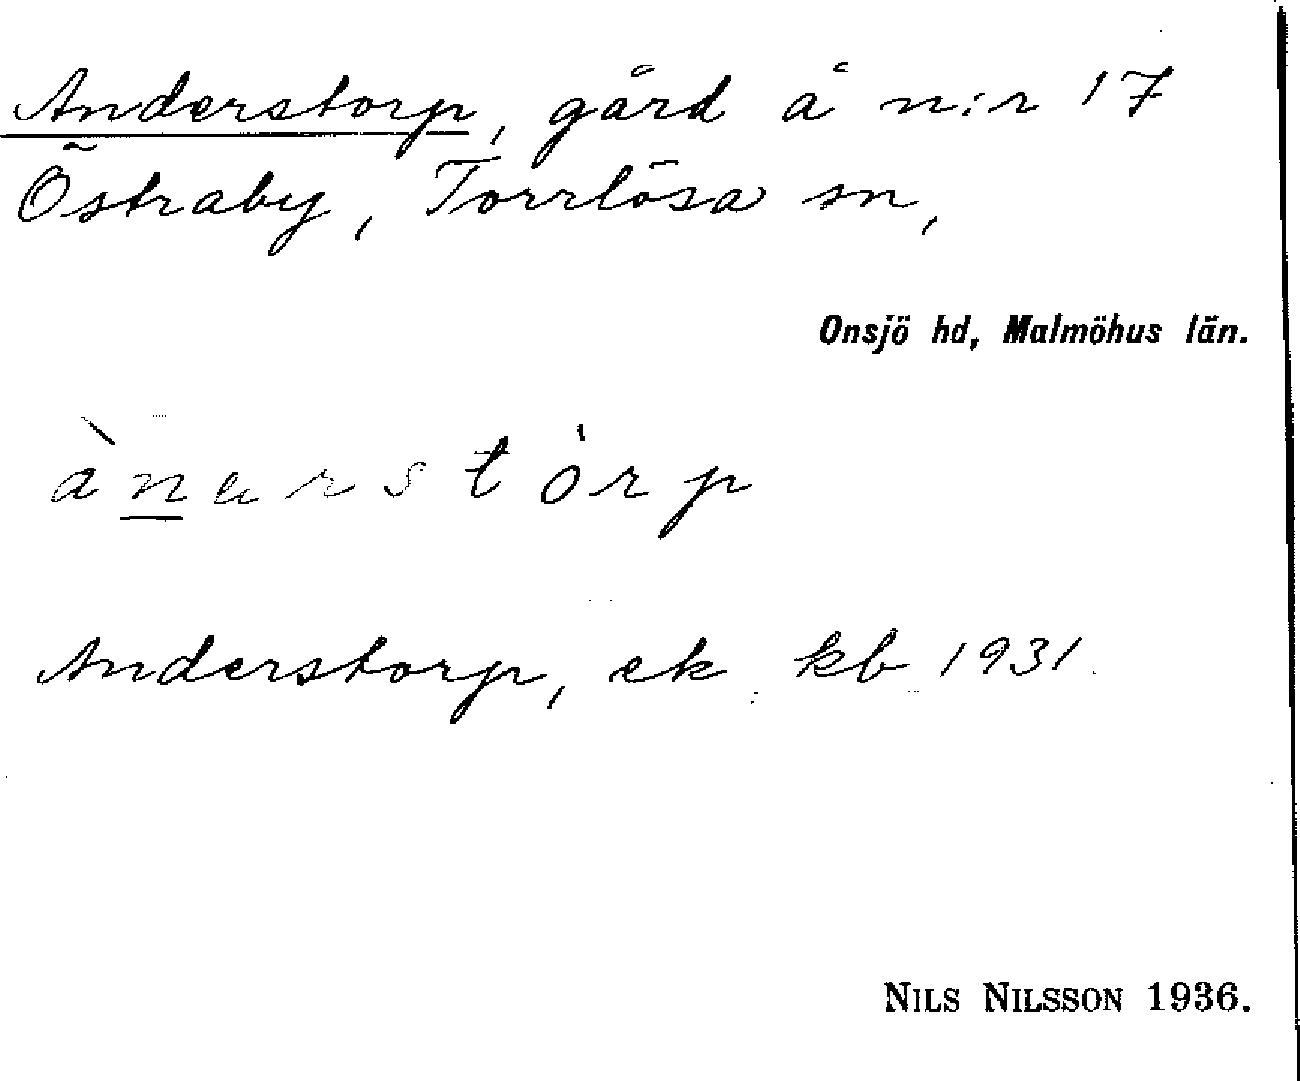 Anderstorp, gård å n:r 17
Östraby, Torrlösa sn,
Onsjö hd, Malmöhus län.
ànarstòrp
Anderstorp, ek kb 1931
NILS NILSSON 1936.